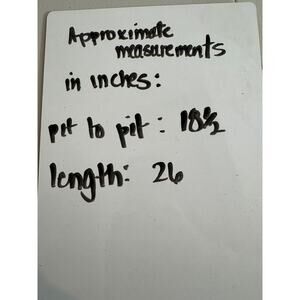 Approximate
measurements
in inches:
pit to pit: 18½
length: 26